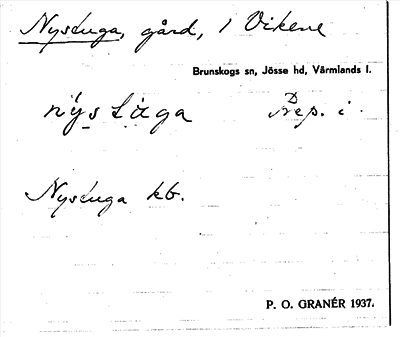 Nystuga, gård, i Vikene
Brunskogs sn, Jösse hd, Värmlands l.
nýstàga Prep. i
Nystuga kb.
P. O. GRANÉR 1937.